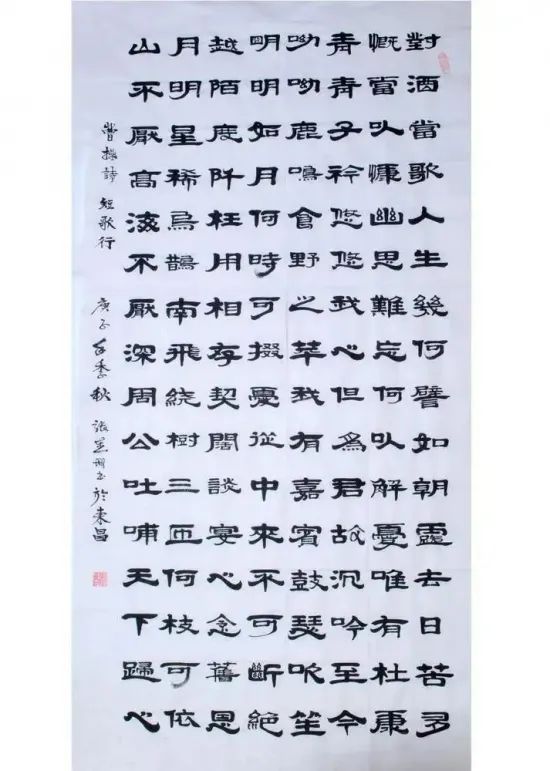 對酒當歌人生幾何譬如朝露去日苦多
慨當以慷幽思難忘何以解憂唯有杜康
青青子衿悠悠我心但為君故沉吟至今
呦呦鹿鳴食野之苹我有嘉賓鼓瑟吹笙
明明如月何時可掇憂從中來不可斷絕
越陌度阡枉用相存契闊談宴心念舊恩
月明星稀烏鵲南飛绕樹三匝何枝可依
山不厭高海不厭深周公吐哺天下歸心
曹操詩 短歌行 庚子年季秋 張書於東昌